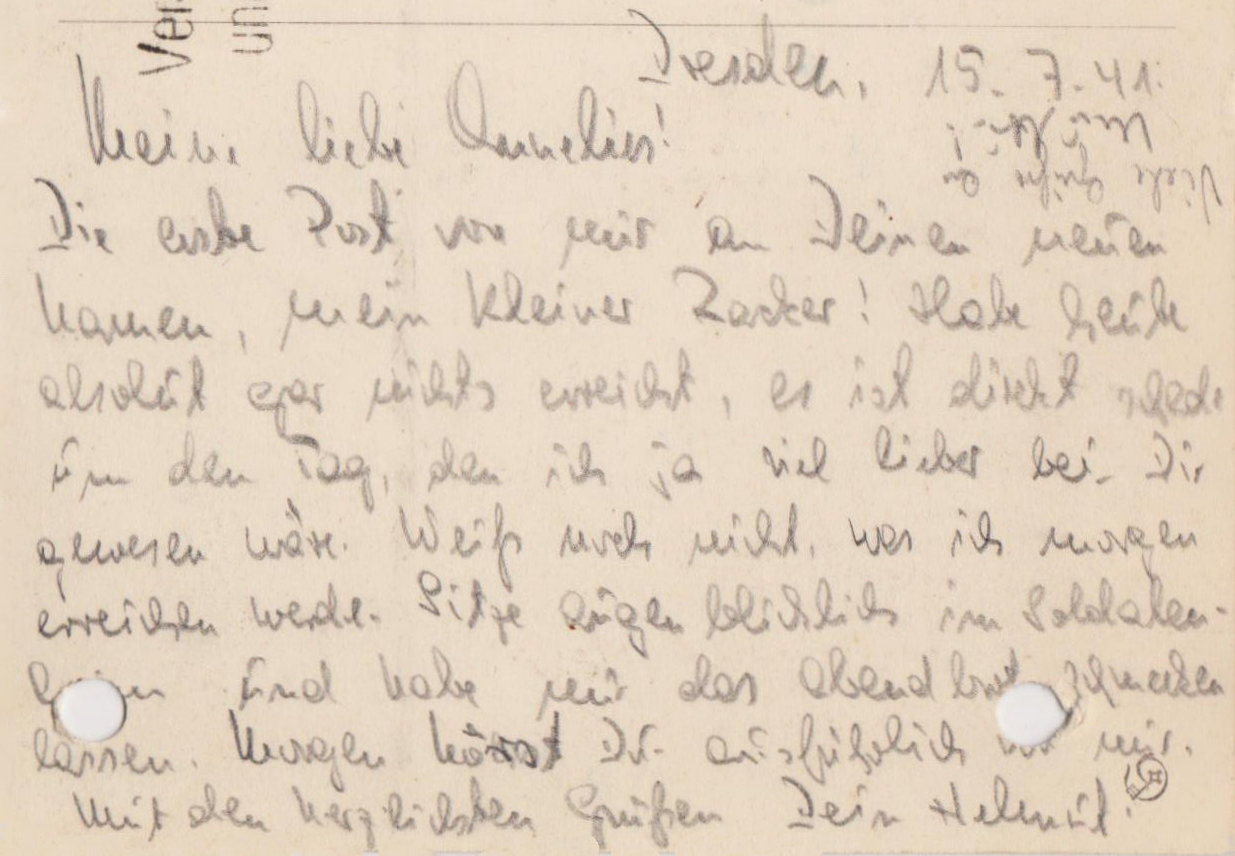 Ver-
un
Dresden, 15. 7. 41.
Meine liebe Annelies!
Viele Grüße an
Die erste Post von mir an Deinen neuen
Namen, mein kleiner Racker! Habe heute
absolut gar nichts erreicht, es ist direkt schade
um den Tag, den ich ja viel lieber bei Dir
gewesen wäre. Weiß noch nicht, was ich morgen
erreichen werde. Sitze augenblicklich im Soldaten-
heim und habe mir das Abendbrot schmecken
lassen. Morgen hörst Du ausführlich von mir.
Mit den herzlichsten Grüßen Dein Helmut!